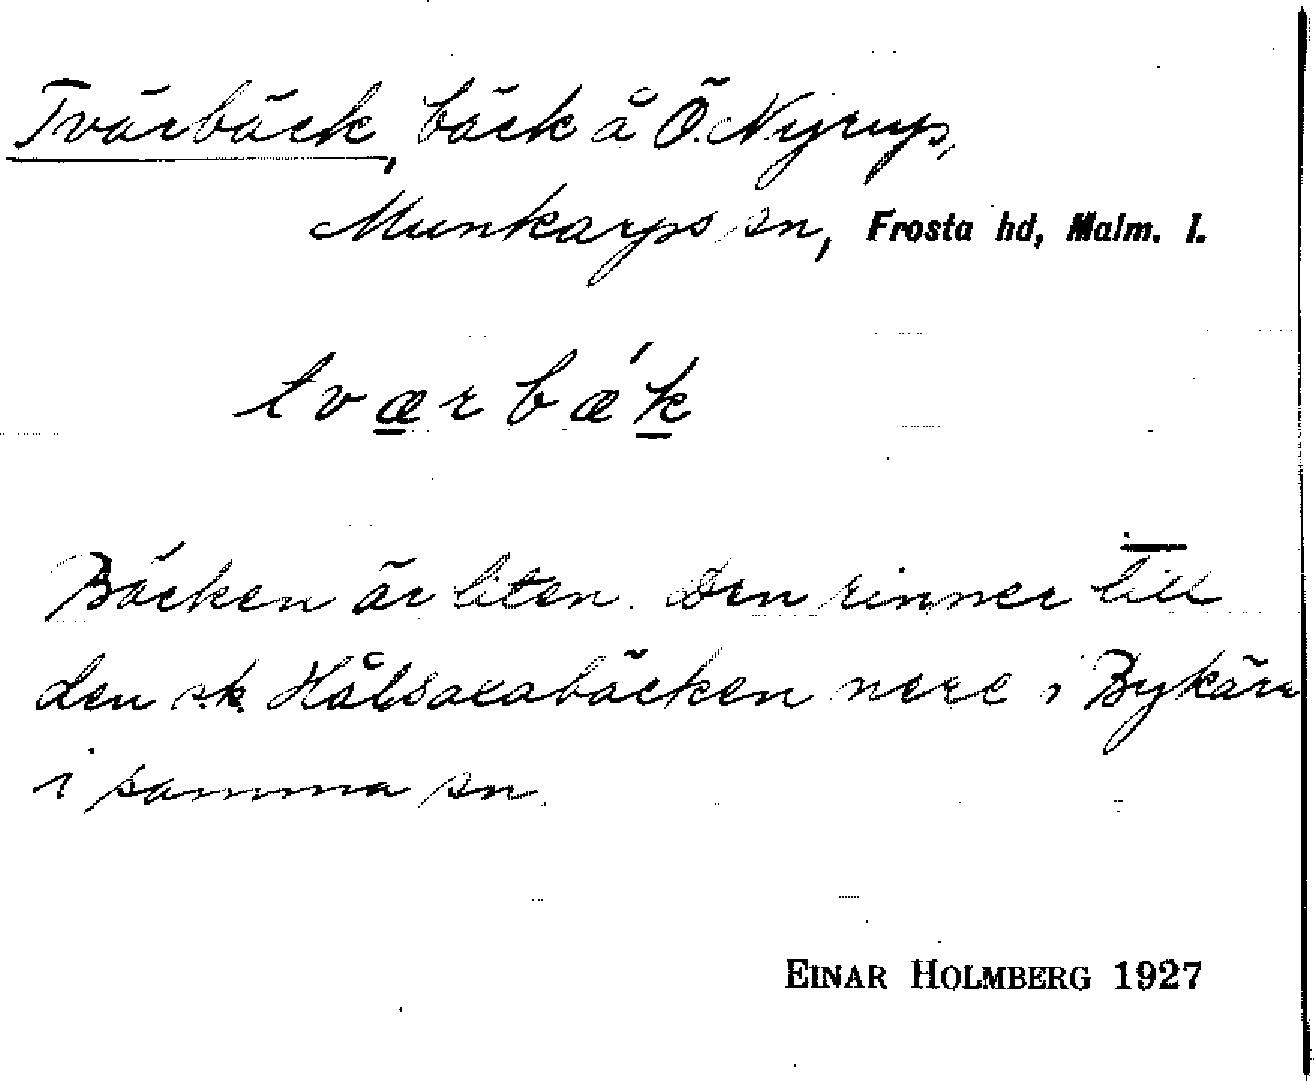 Tvärbäck, bäck å Ö. Nyrup,
Munkarps sn, Frosta hd, Malm. l.
tværbæ´k
Bäcken är liten. Den rinner till
den sk. bäcken nere i Bykärr
i samma sn.
EINAR HOLMBERG 1927